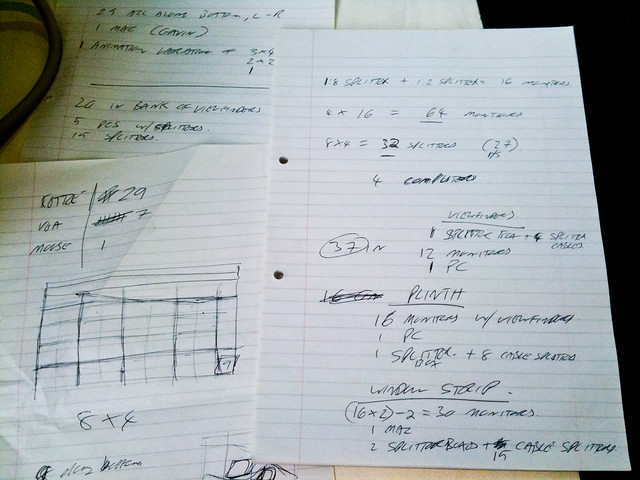 29 ALL ALONG BOTTOM, L-R
1 MAC (GAVIN)
1 ANIMATION VARIATION OF 3x4
2x2
1
20 IN BANK OF VIEWFINDERS
5 PCS W/ SPLITTERS.
15 SPLITTERS.
KETTLE 29
VGA 7
MOUSE 1
8x4
1:8 SPLITTER + 1:2 SPLITTER = 16 MONITORS
4 x 16 = 64 MONITORS
8x4 = 32 SPLITTERS (27)
4 COMPUTERS
VIEWFINDERS
1 SPLITTER BOX + 4 SPLITTER CABLES
37 IN
12 MONITORS
1 PC
PLINTH
16 MONITORS W/ VIEWFINDERS
1 PC
1 SPLITTER BOX + 8 CABLE SPLITTERS
WINDOW STRIP.
(16x2)-2 = 30 MONITORS.
1 MAC
2 SPLITTER + 15 CABLE SPLITTERS.
bottom